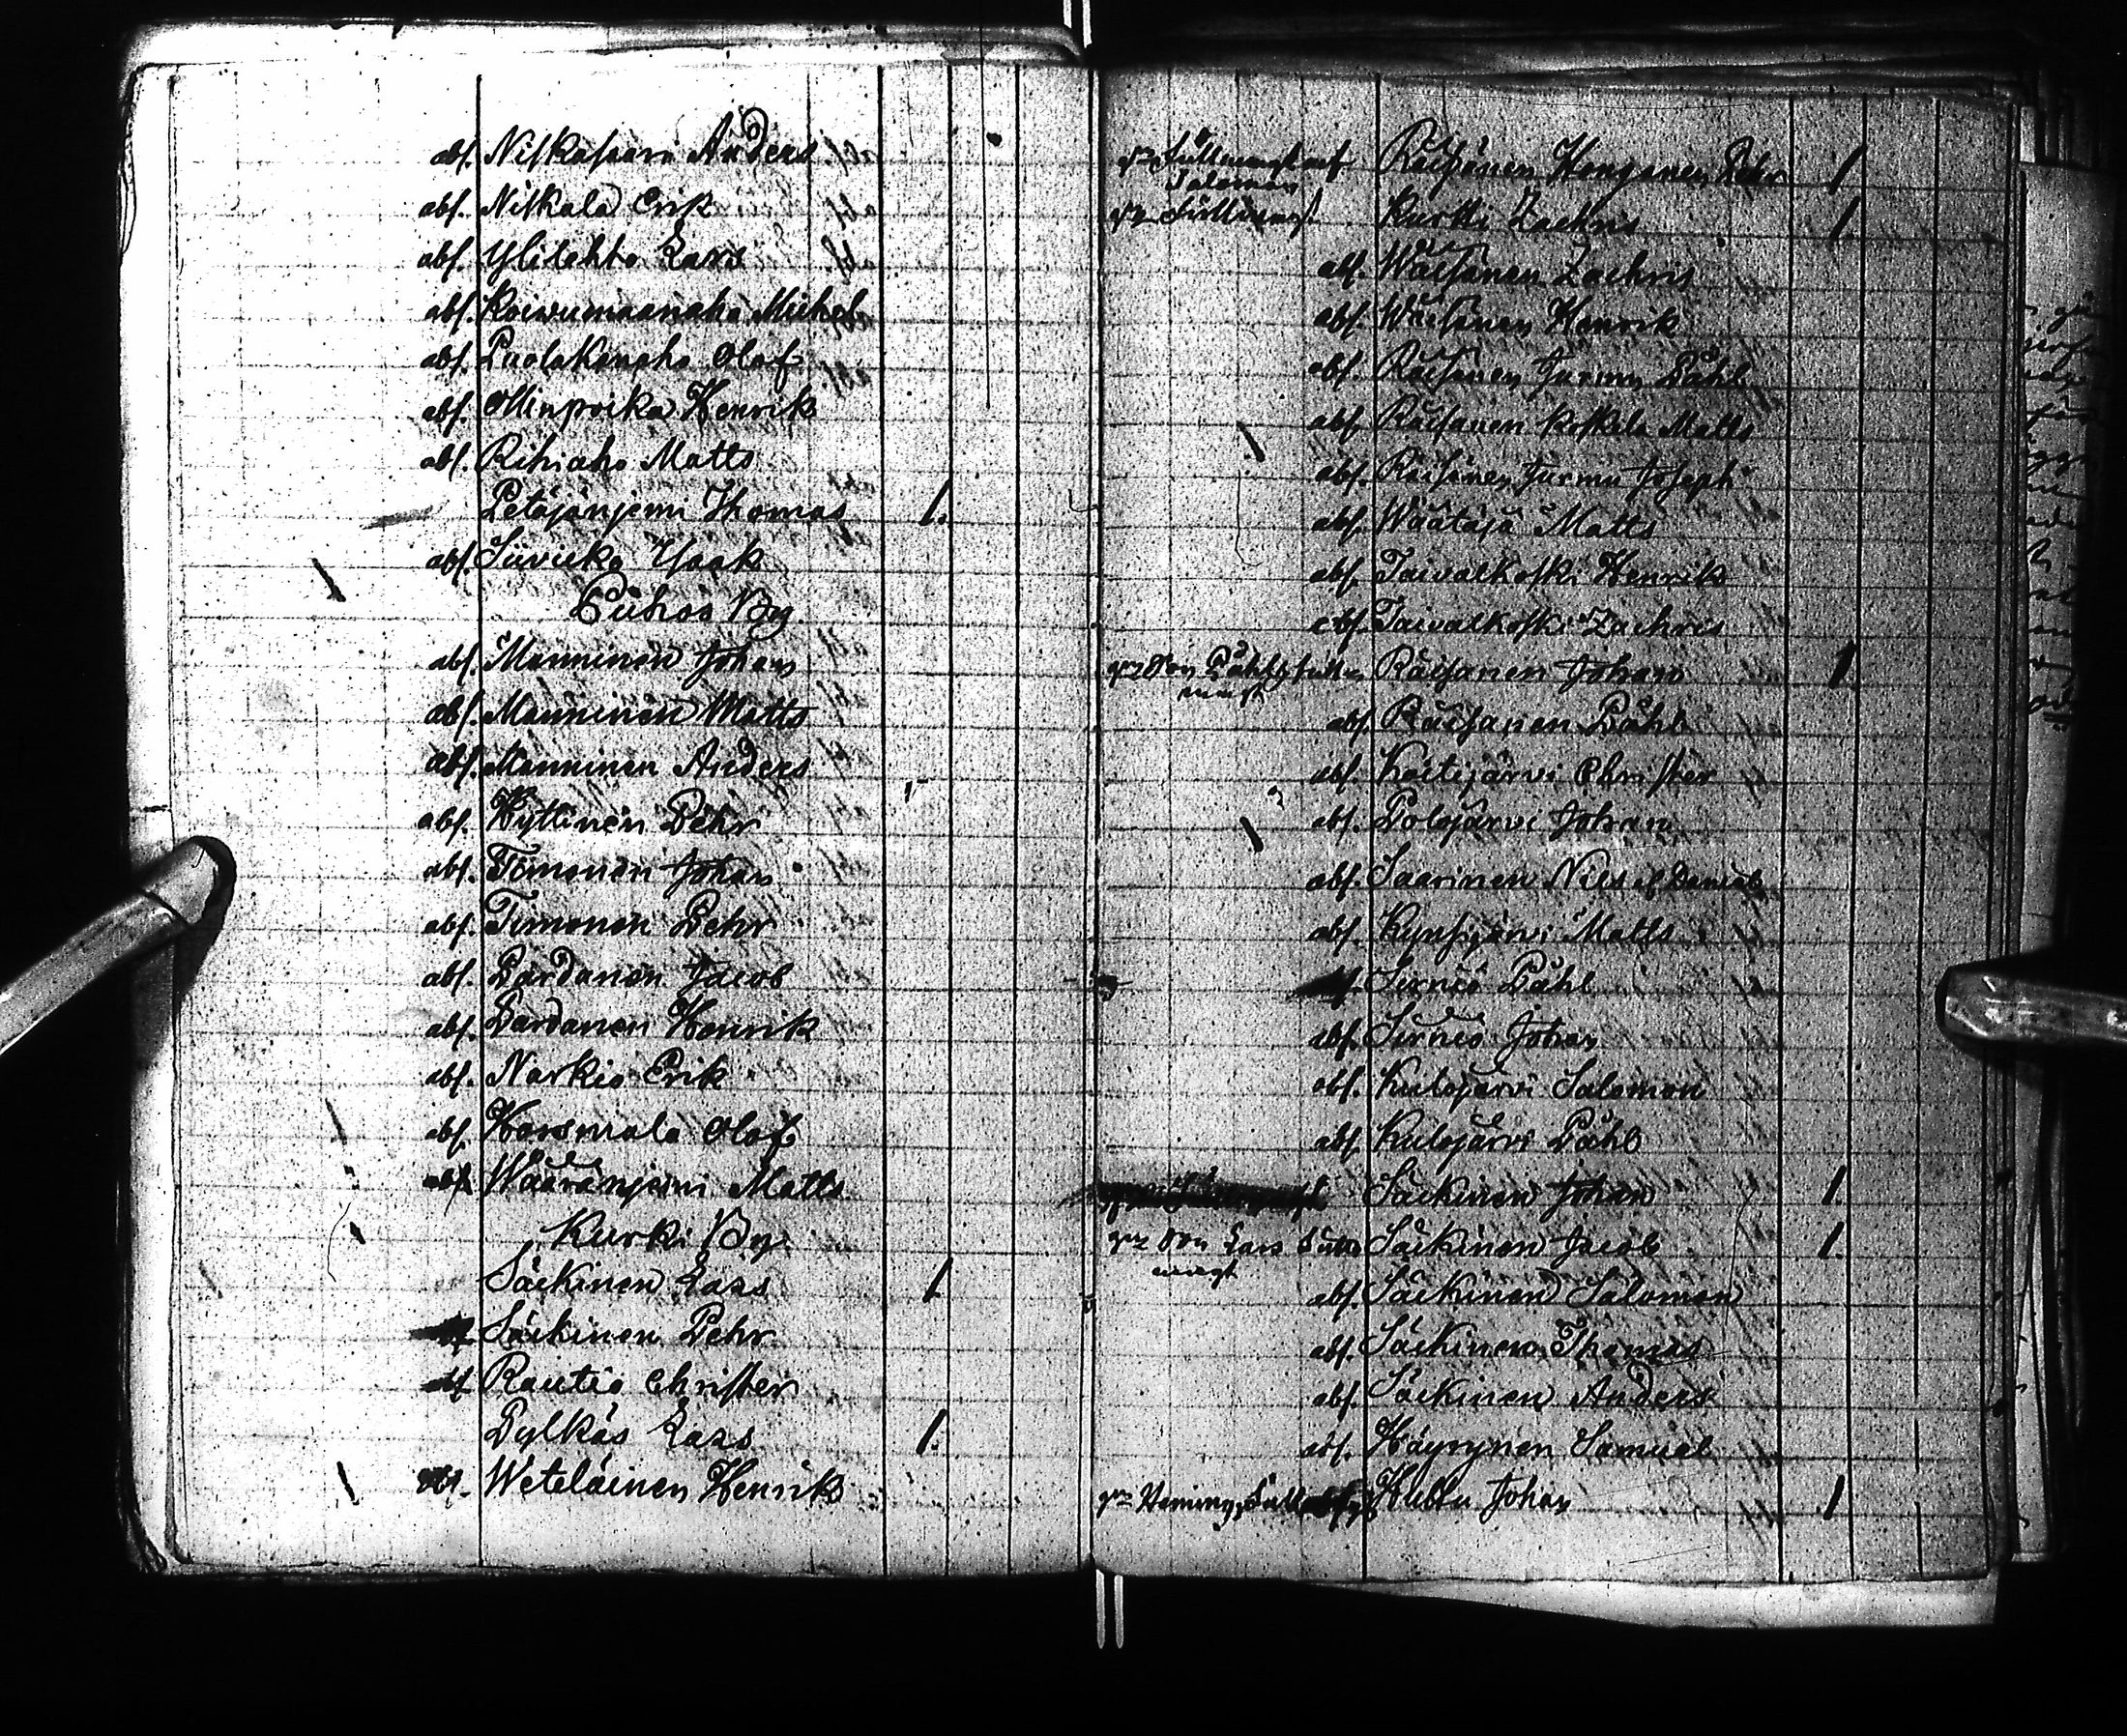 abs. Niskasaari Anders
abs. Niskala Erik
abs. Ylilehto Lars
abs. Koivumaanaho Michel
abs. Puolakanaho Olof
abs. Ollinpoika Henrik
abs. Rihiaho Matts
Petäjänjemi Thomas 1.
abs. Siivicko Isaak
Puhos By
abs. Manninen Johan
abs. Manninen Matts
abs. Manninen Anders
abs. Hyttinen Pehr
abs. Timonen Johan
abs. Timonen Pehr
abs. Pardanen Jacob
abs. Pardanen Henrik
abs. Narkio Erik
abs. Horsmala Olof
abs. Wääränjemi Matts
Kurki By
Säckinen Lars 1
Säckinen Pehr
abs. Rautio Christer
Pylkäs Lars 1.
abs. Weteläinen Henrik
Räisänen Honganen Pehr 1
Salomon
Kurtti Zachris 1.
abs. Wäisänen Zachris
abs. Wäisänen Henrik
abs. Räisänen Jurmu Påhl
abs. Räisänen Koskela Matts
abs. Räisänen Jurmu Joseph
abs. Wäätäjä Matts
abs. Taivalkoski Henrik
abs. Taivalkoski Zachris
gm Son Påhls fullm Räisänen Johan 1.
magt
abs. Räisänen Påhl
abs. Koitijärvi Christer
abs. Polojärvi Johan
abs. Saarinen Nils el Daniel
abs. Kynsijärvi Matts
Sirniö Påhl
abs. Sirniö Johan
abs. Kulojärvi Salomon
abs. Kulojärvi Påhl
Säckinen Johan 1.
gm Son Lars fullm Säckinen Jacob 1.
magt
abs. Säckinen Salomon
abs. Säckinen Thomas
abs. Säckinen Anders
abs. Häyrynen Samuel
Huttu Johan 1